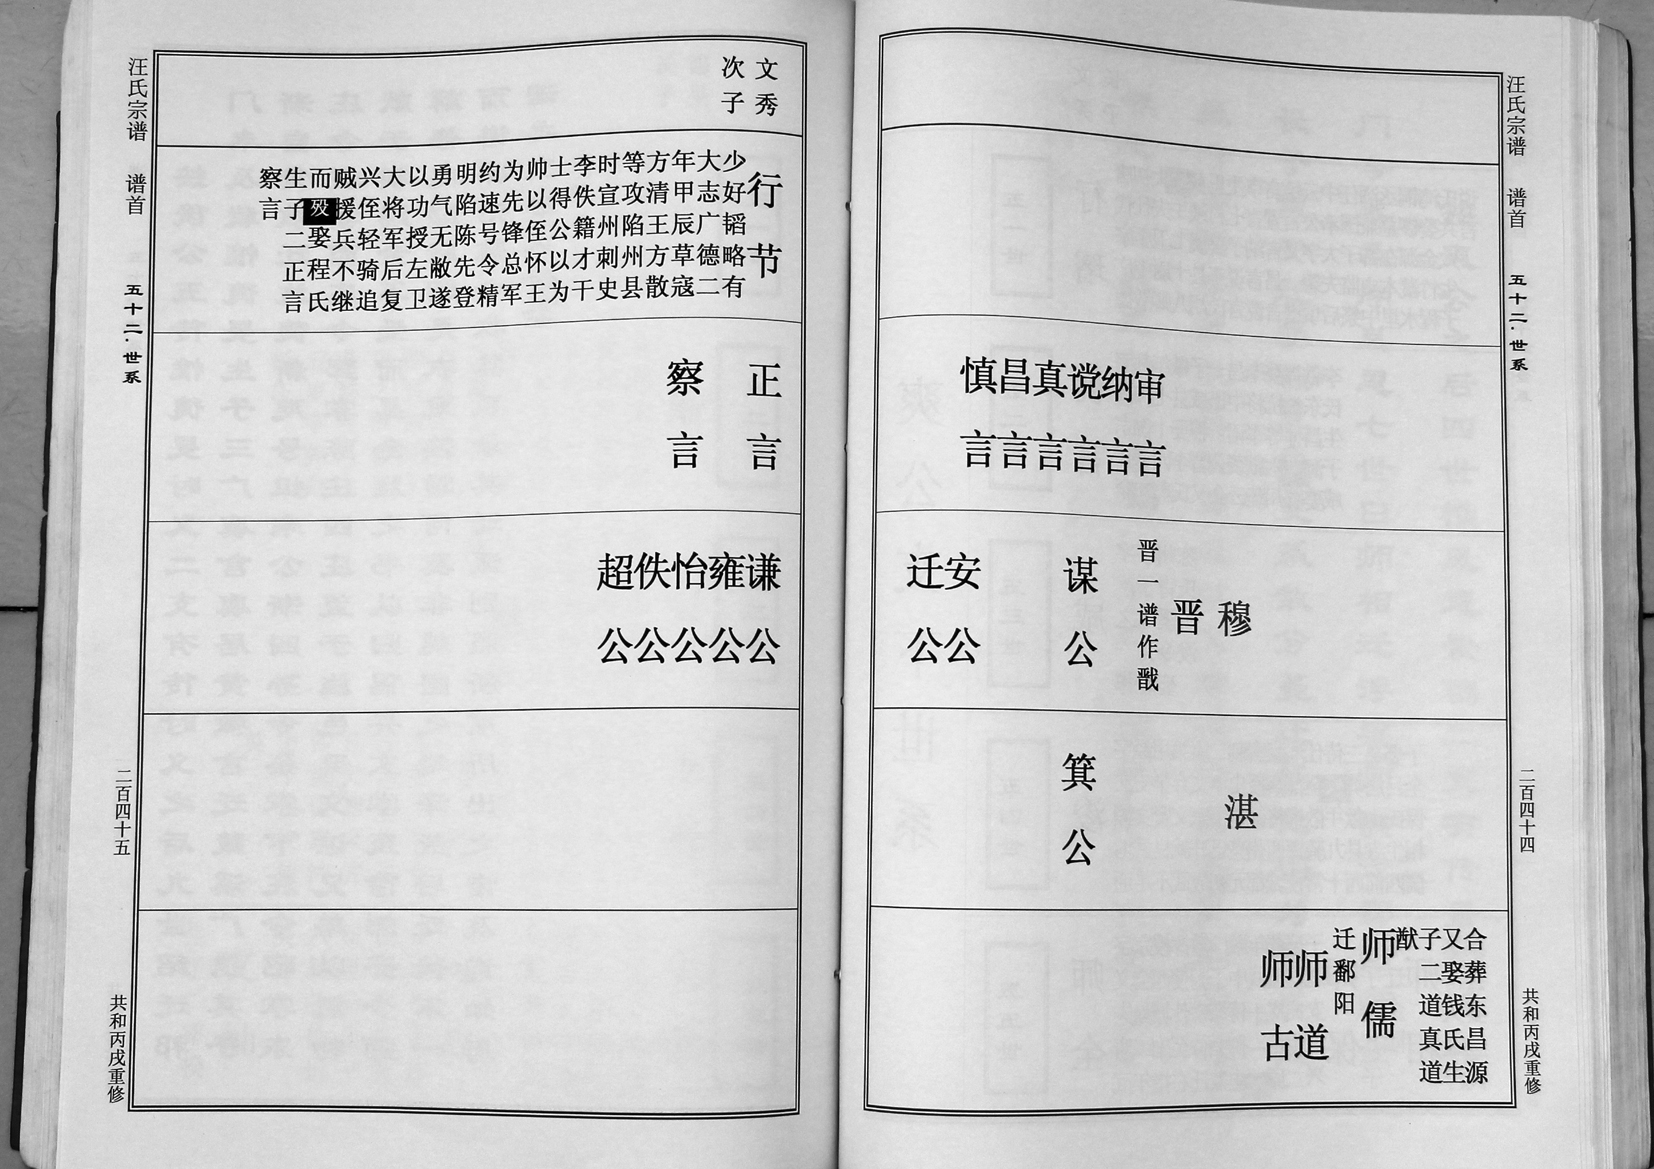 汪氏宗谱 谱首 五十二·世系 二百四十四 共和丙戌重修
审言
纳言
谠言
真言
昌言
慎言
穆
晋
晋一谱作戬
谋公
安公
迁公
湛
箕公
合葬东昌源
又娶钱氏生
子二道真道
猷
师儒
迁鄱阳
师道
师古
文秀
次子
行节
少好韬略有
大志广德二
年甲辰草寇
方清王方散
等攻陷州县
时宣州刺史
李佚籍才干
士得公以为
帅以侄怀王
为先锋总军
约速号令精
明陷陈先登
勇气无敝遂
以功授左卫
大将军后复
兴侄轻骑追
贼援兵不继
而殁娶程氏
生子二正言
察言
正言
察言
谦公
雍公
怡公
佚公
超公
汪氏宗谱 谱首 五十二·世系 二百四十五 共和丙戌重修